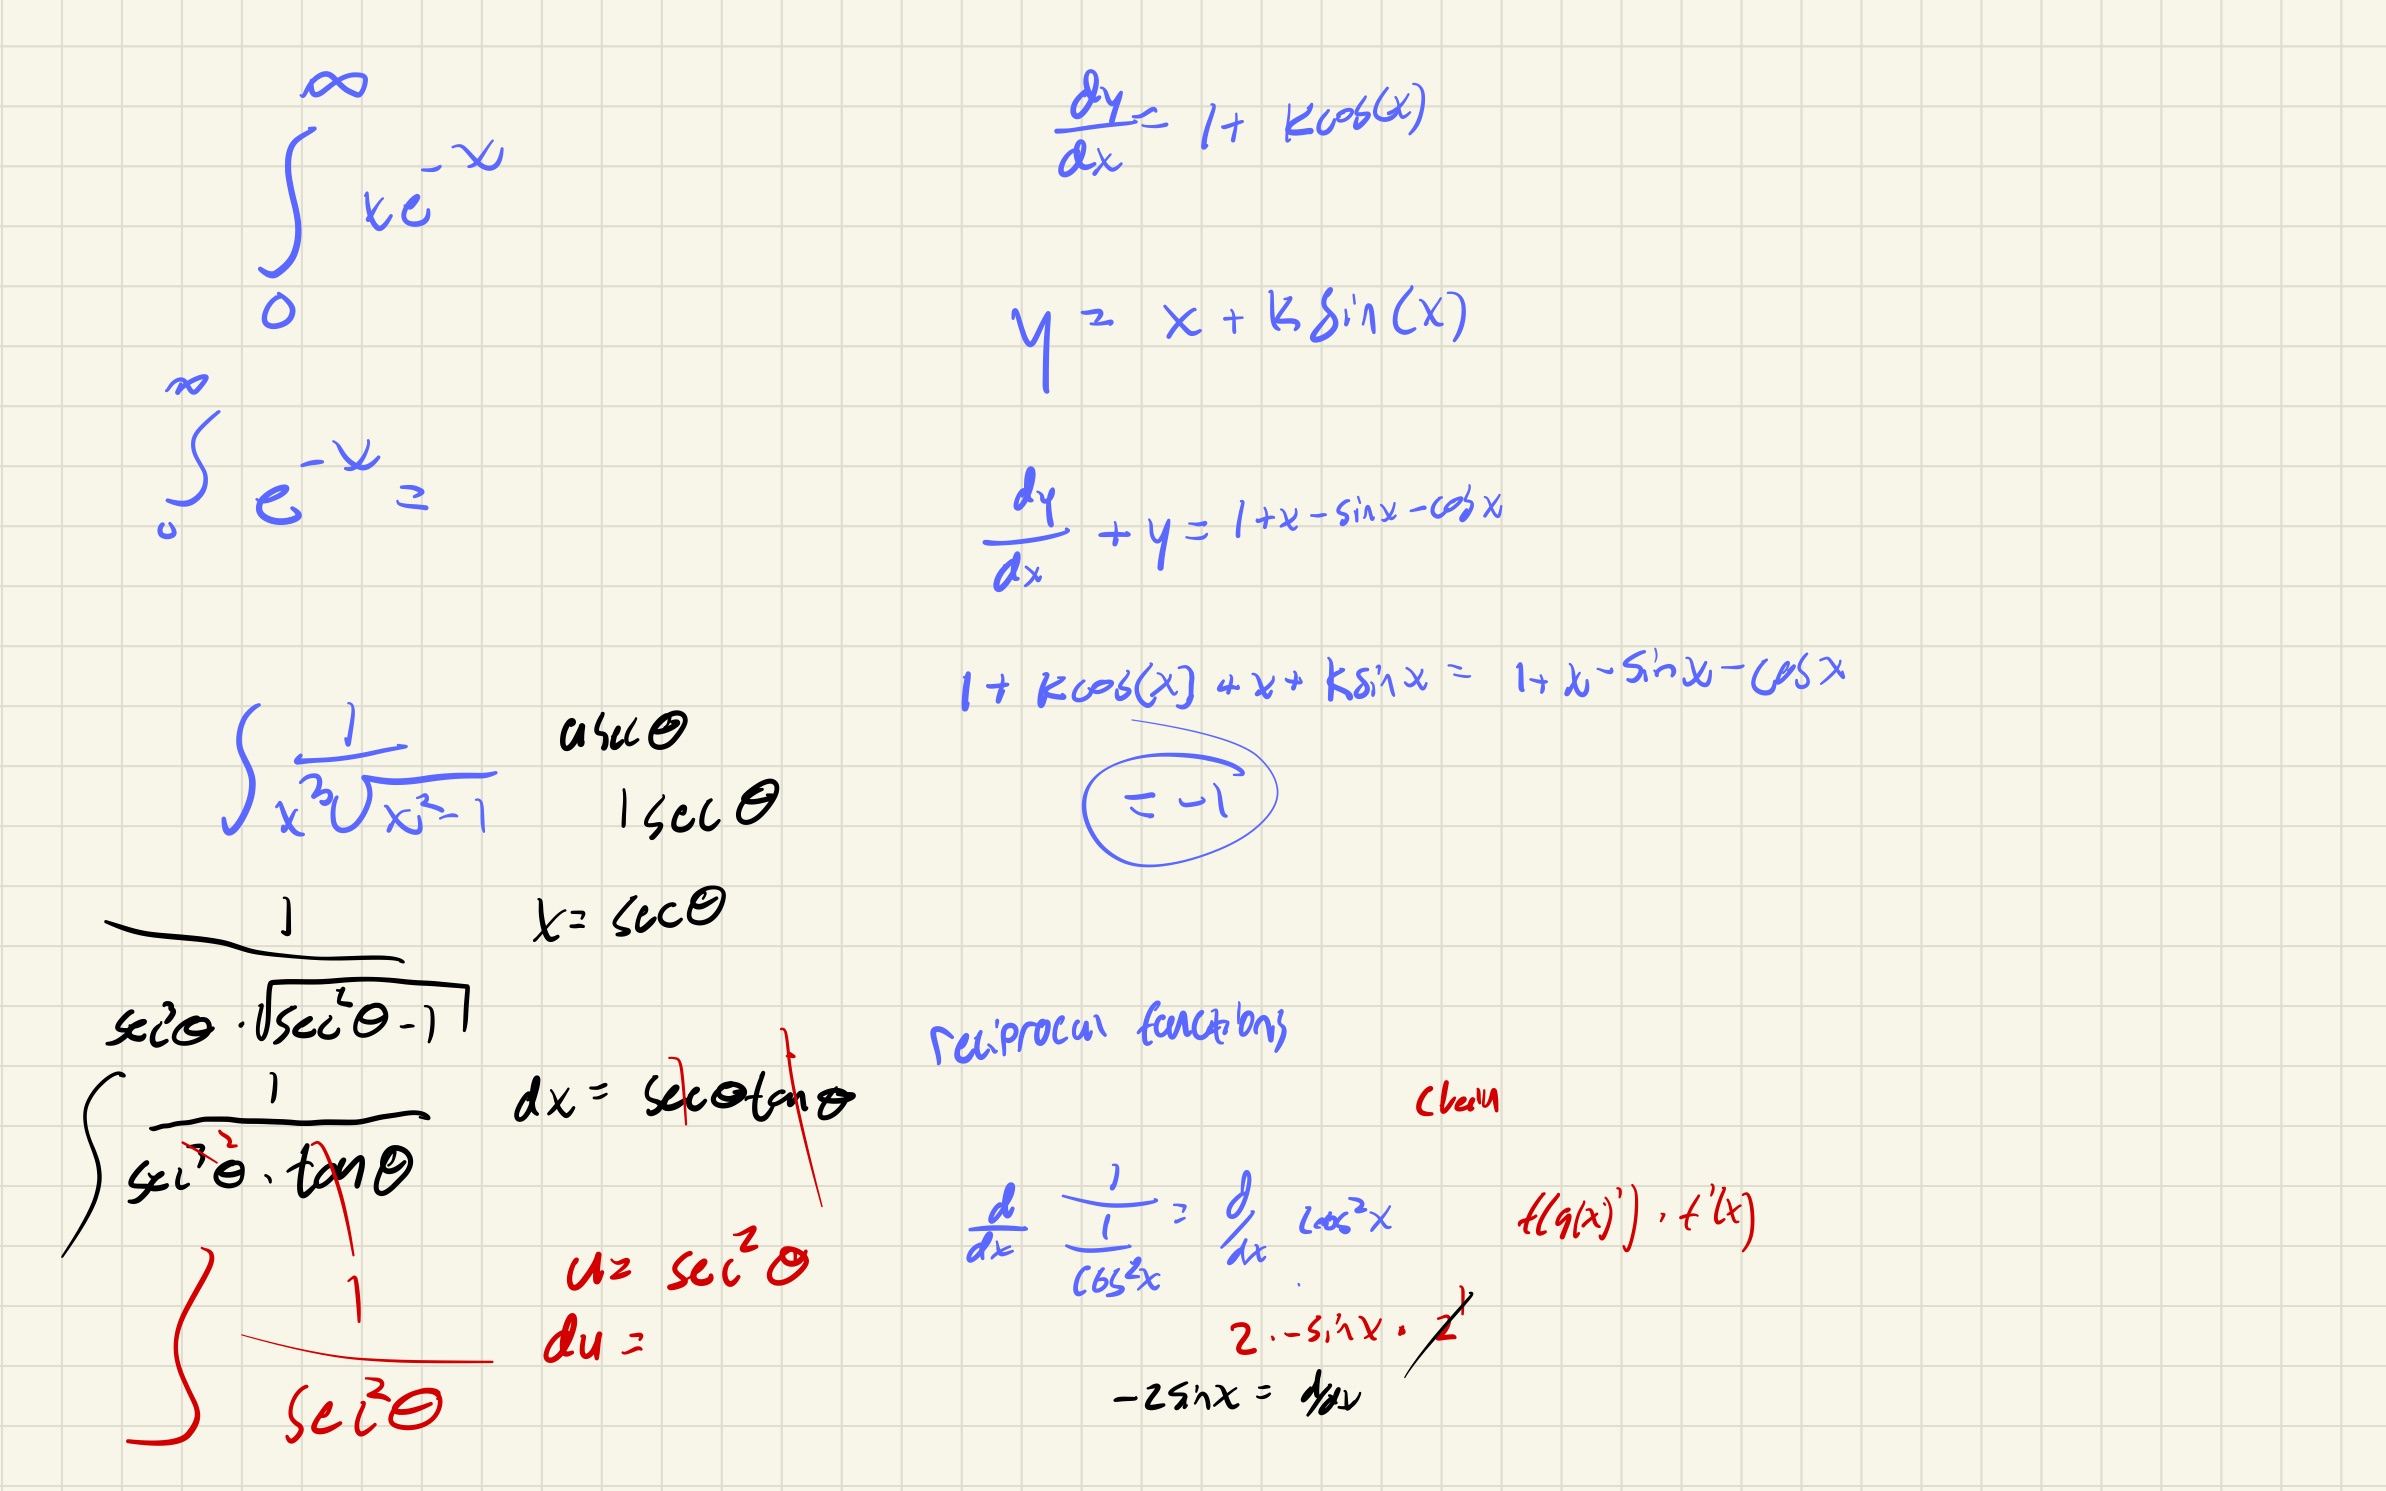 ∞
∫ ke^-x
0
∞
∫ e^-x =
0
∫ 1/(x³√(x²-1))
asecθ
1secθ
x = secθ
1/(sec³θ · √(sec²θ - 1))
∫ 1/(sec³θ · tanθ)
2
dx = secθtanθ
∫ 1/sec²θ
u = sec²θ
du =
dy/dx = 1 + kcos(x)
y = x + ksin(x)
dy/dx + y = 1+x-sinx-cosx
1 + kcos(x) + x + ksinx = 1+x-sinx-cosx
= -1
reciprocal functions
chain
d/dx 1/(1/cos²x) = d/dx cos²x
f(g(x)') · f'(x)
2 · -sinx · 2¹
-2sinx = d/dx